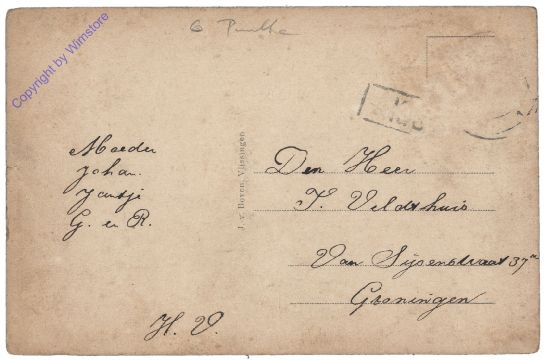 Copyright by Wimstore
Moeder
Johan.
Jantje
G. en R.
H. V.
J. v. Boven, Vlissingen
Den Heer
Veldthuis
Van Sijsenstraat 37a
Groningen